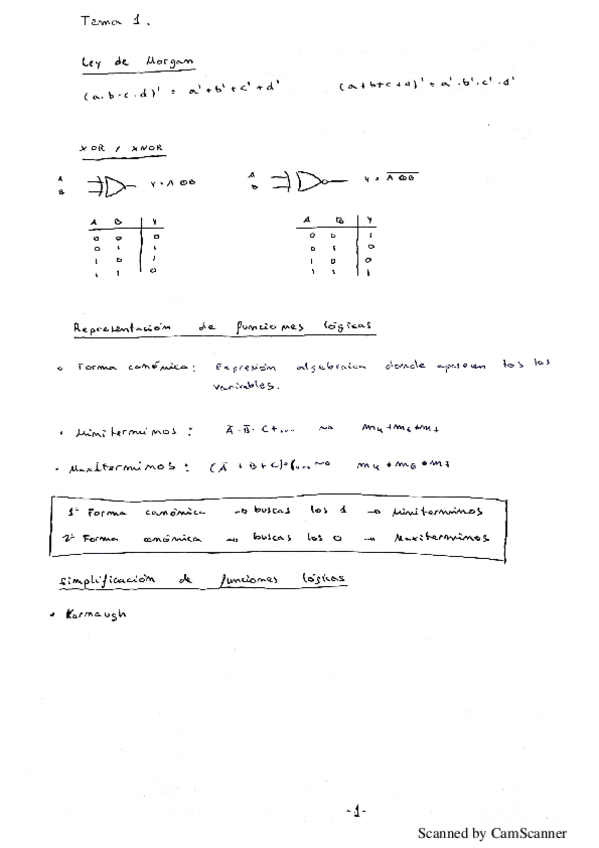 Tema 1.
Ley de Morgan
(a.b.c.d)' = a'+b'+c'+d' (a+b+c+d)' = a'.b'.c'.d'
XOR / XNOR
A
B
Y = A⊕B
A
B
Y = \overline{A⊕B}
A B Y
0 0 0
0 1 1
1 0 1
1 1 0
A B Y
0 0 1
0 1 0
1 0 0
1 1 1
Representación de funciones lógicas
• Forma canónica: Expresión algebraica donde aparecen tos las
variables.
• Minitermimos: Ā·B̄·C+... ~ m4+m6+m7
• Maxitermimos: (Ā+B+C)·(... ~ m4•m6•m7
1ª Forma canónica → buscas los 1 → Minitermimos
2ª Forma canónica → buscas los 0 → Maxitermimos
Simplificación de funciones lógicas
• Karnaugh
-1-
Scanned by CamScanner